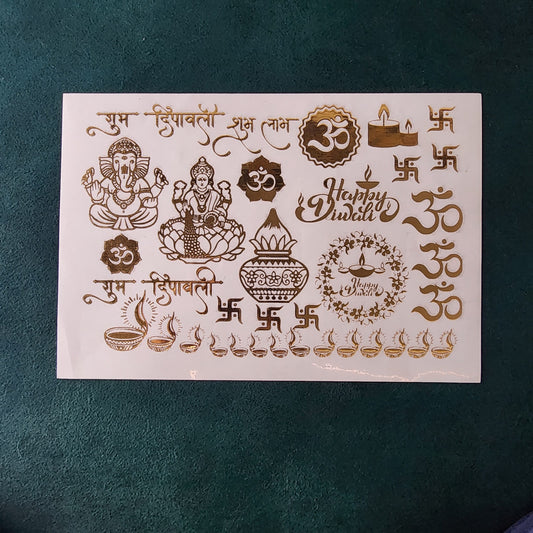 शुभ दिपावली
शुभ लाभ
ॐ
ॐ
Happy
Diwali
ॐ
ॐ
ॐ
ॐ
Happy
Diwali
शुभ दिपावली